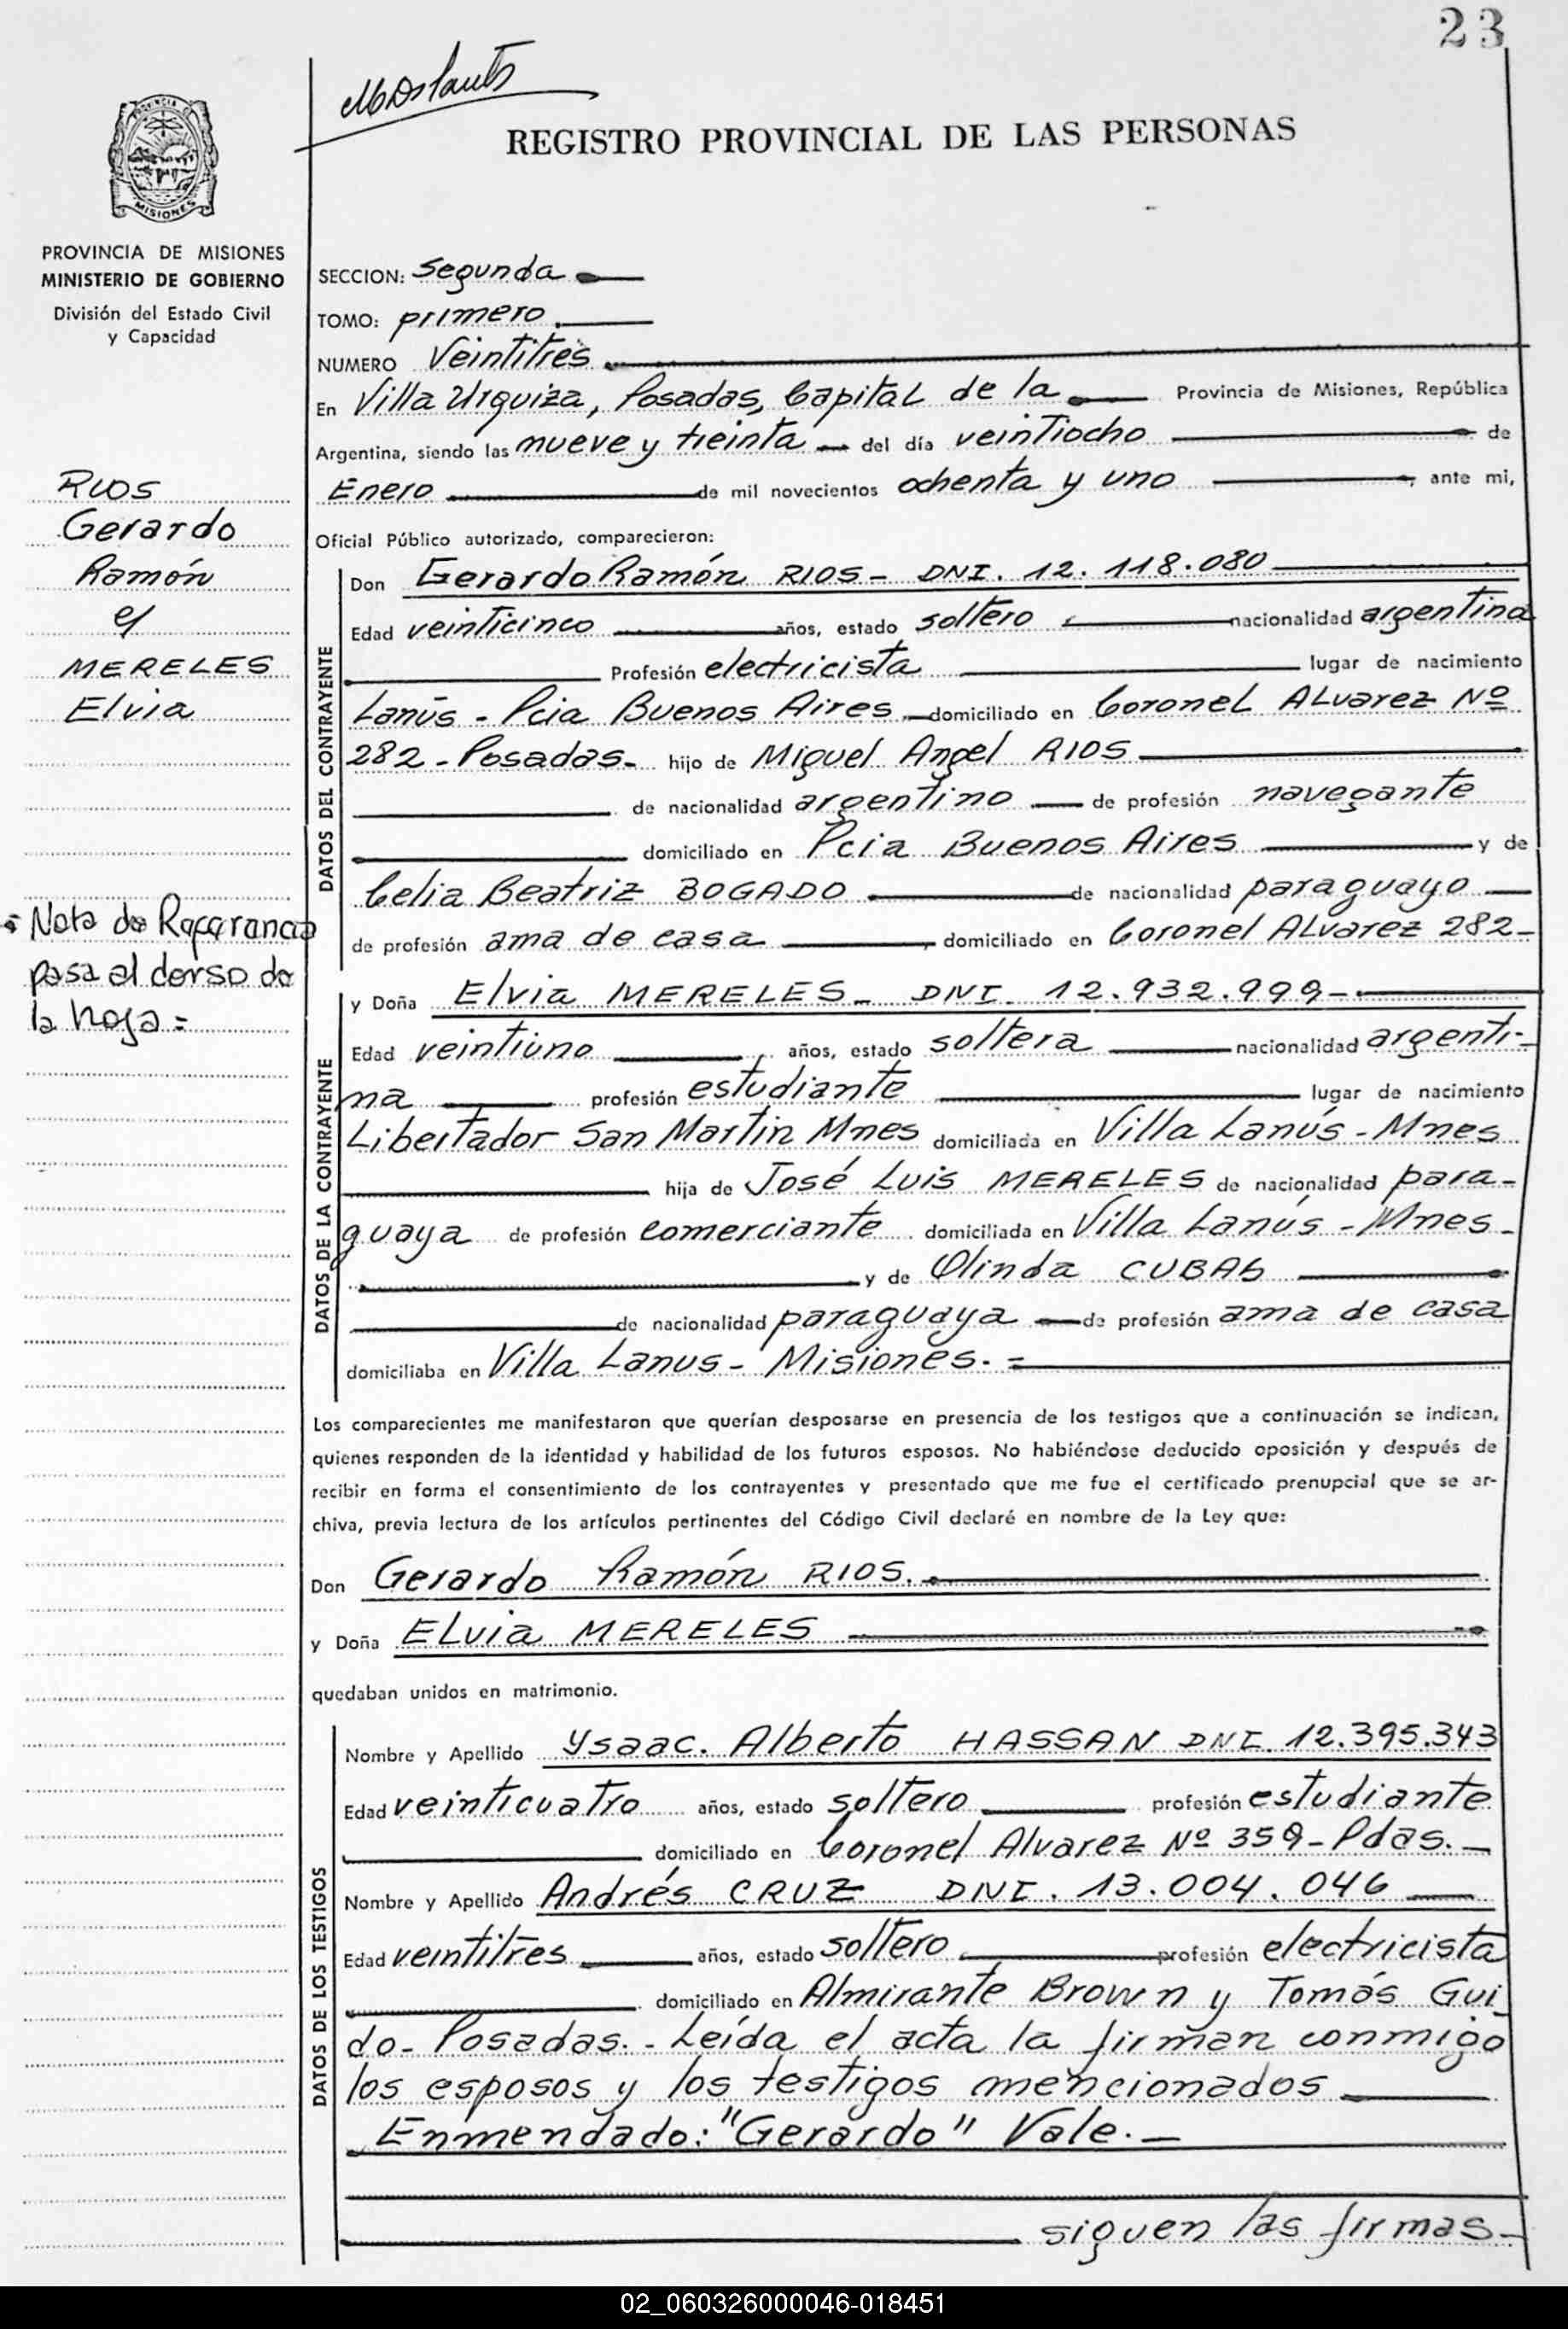 23
REGISTRO PROVINCIAL DE LAS PERSONAS
PROVINCIA DE
MISIONES
PROVINCIA DE MISIONES
MINISTERIO DE GOBIERNO
División del Estado Civil
y Capacidad
SECCION: Segunda
TOMO: primero.
NUMERO Veintitres
En Villa Urquiza, Posadas, Capital de la Provincia de Misiones, República
Argentina, siendo las nueve y treinta del día veintiocho de
Enero de mil novecientos ochenta y uno, ante mi,
Oficial Público autorizado, comparecieron:
RIOS
Gerardo
Ramón
c/
MERELES
Elvia
- Nota de Referencia
pasa al dorso de
la hoja =
DATOS DEL CONTRAYENTE
Don Gerardo Ramón RIOS - DNI. 12.118.080
Edad veinticinco años, estado soltero nacionalidad argentina
Profesión electricista lugar de nacimiento
Lanús - Pcia Buenos Aires domiciliado en Coronel ALvarez Nº
282 - Posadas - hijo de Miguel Angel RIOS
de nacionalidad argentino de profesión navegante
domiciliado en Pcia Buenos Aires y de
Celia Beatriz BOGADO de nacionalidad paraguayo
de profesión ama de casa, domiciliado en Coronel ALvarez 282 -
DATOS DE LA CONTRAYENTE
y Doña Elvia MERELES - DNI. 12.932.999 -
Edad veintiuno años, estado soltera nacionalidad argenti-
na profesión estudiante lugar de nacimiento
Libertador San Martin Mnes domiciliada en Villa Lanús - Mnes
hija de José Luis MERELES de nacionalidad para-
guaya de profesión comerciante domiciliada en Villa Lanús - Mnes -
y de Olinda CUBAS
de nacionalidad paraguaya de profesión ama de casa
domiciliaba en Villa Lanus - Misiones. =
Los comparecientes me manifestaron que querían desposarse en presencia de los testigos que a continuación se indican,
quienes responden de la identidad y habilidad de los futuros esposos. No habiéndose deducido oposición y después de
recibir en forma el consentimiento de los contrayentes y presentado que me fue el certificado prenupcial que se ar-
chiva, previa lectura de los artículos pertinentes del Código Civil declaré en nombre de la Ley que:
Don Gerardo Ramón RIOS.
y Doña ELvia MERELES
quedaban unidos en matrimonio.
DATOS DE LOS TESTIGOS
Nombre y Apellido Ysaac. Alberto HASSAN DNI. 12.395.343
Edad veinticuatro años, estado soltero profesión estudiante
domiciliado en Coronel Alvarez Nº 359 - Pdas. -
Nombre y Apellido Andrés CRUZ DNI. 13.004.046
Edad veintitres años, estado soltero profesión electricista
domiciliado en Almirante Brown y Tomás Gui
do - Posadas. - Leída el acta la firman conmigo
los esposos y los testigos mencionados
Enmendado: "Gerardo" Vale. -
siguen las firmas -
02_060326000046-018451